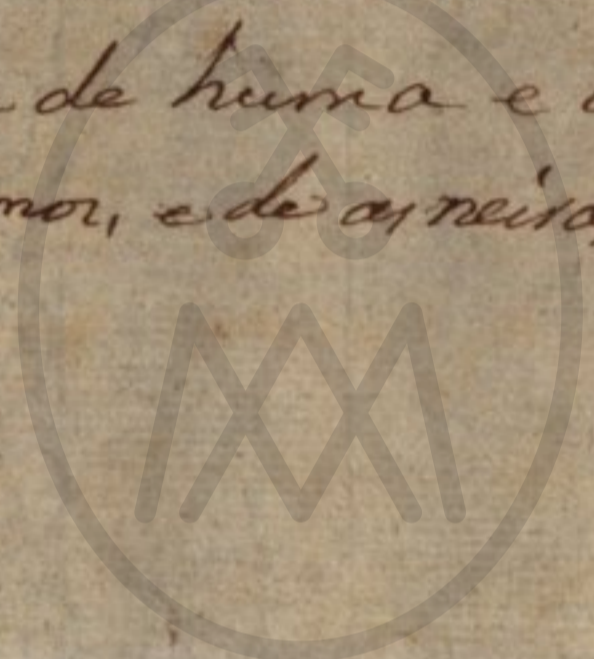 de huma e
mor, e de asneira